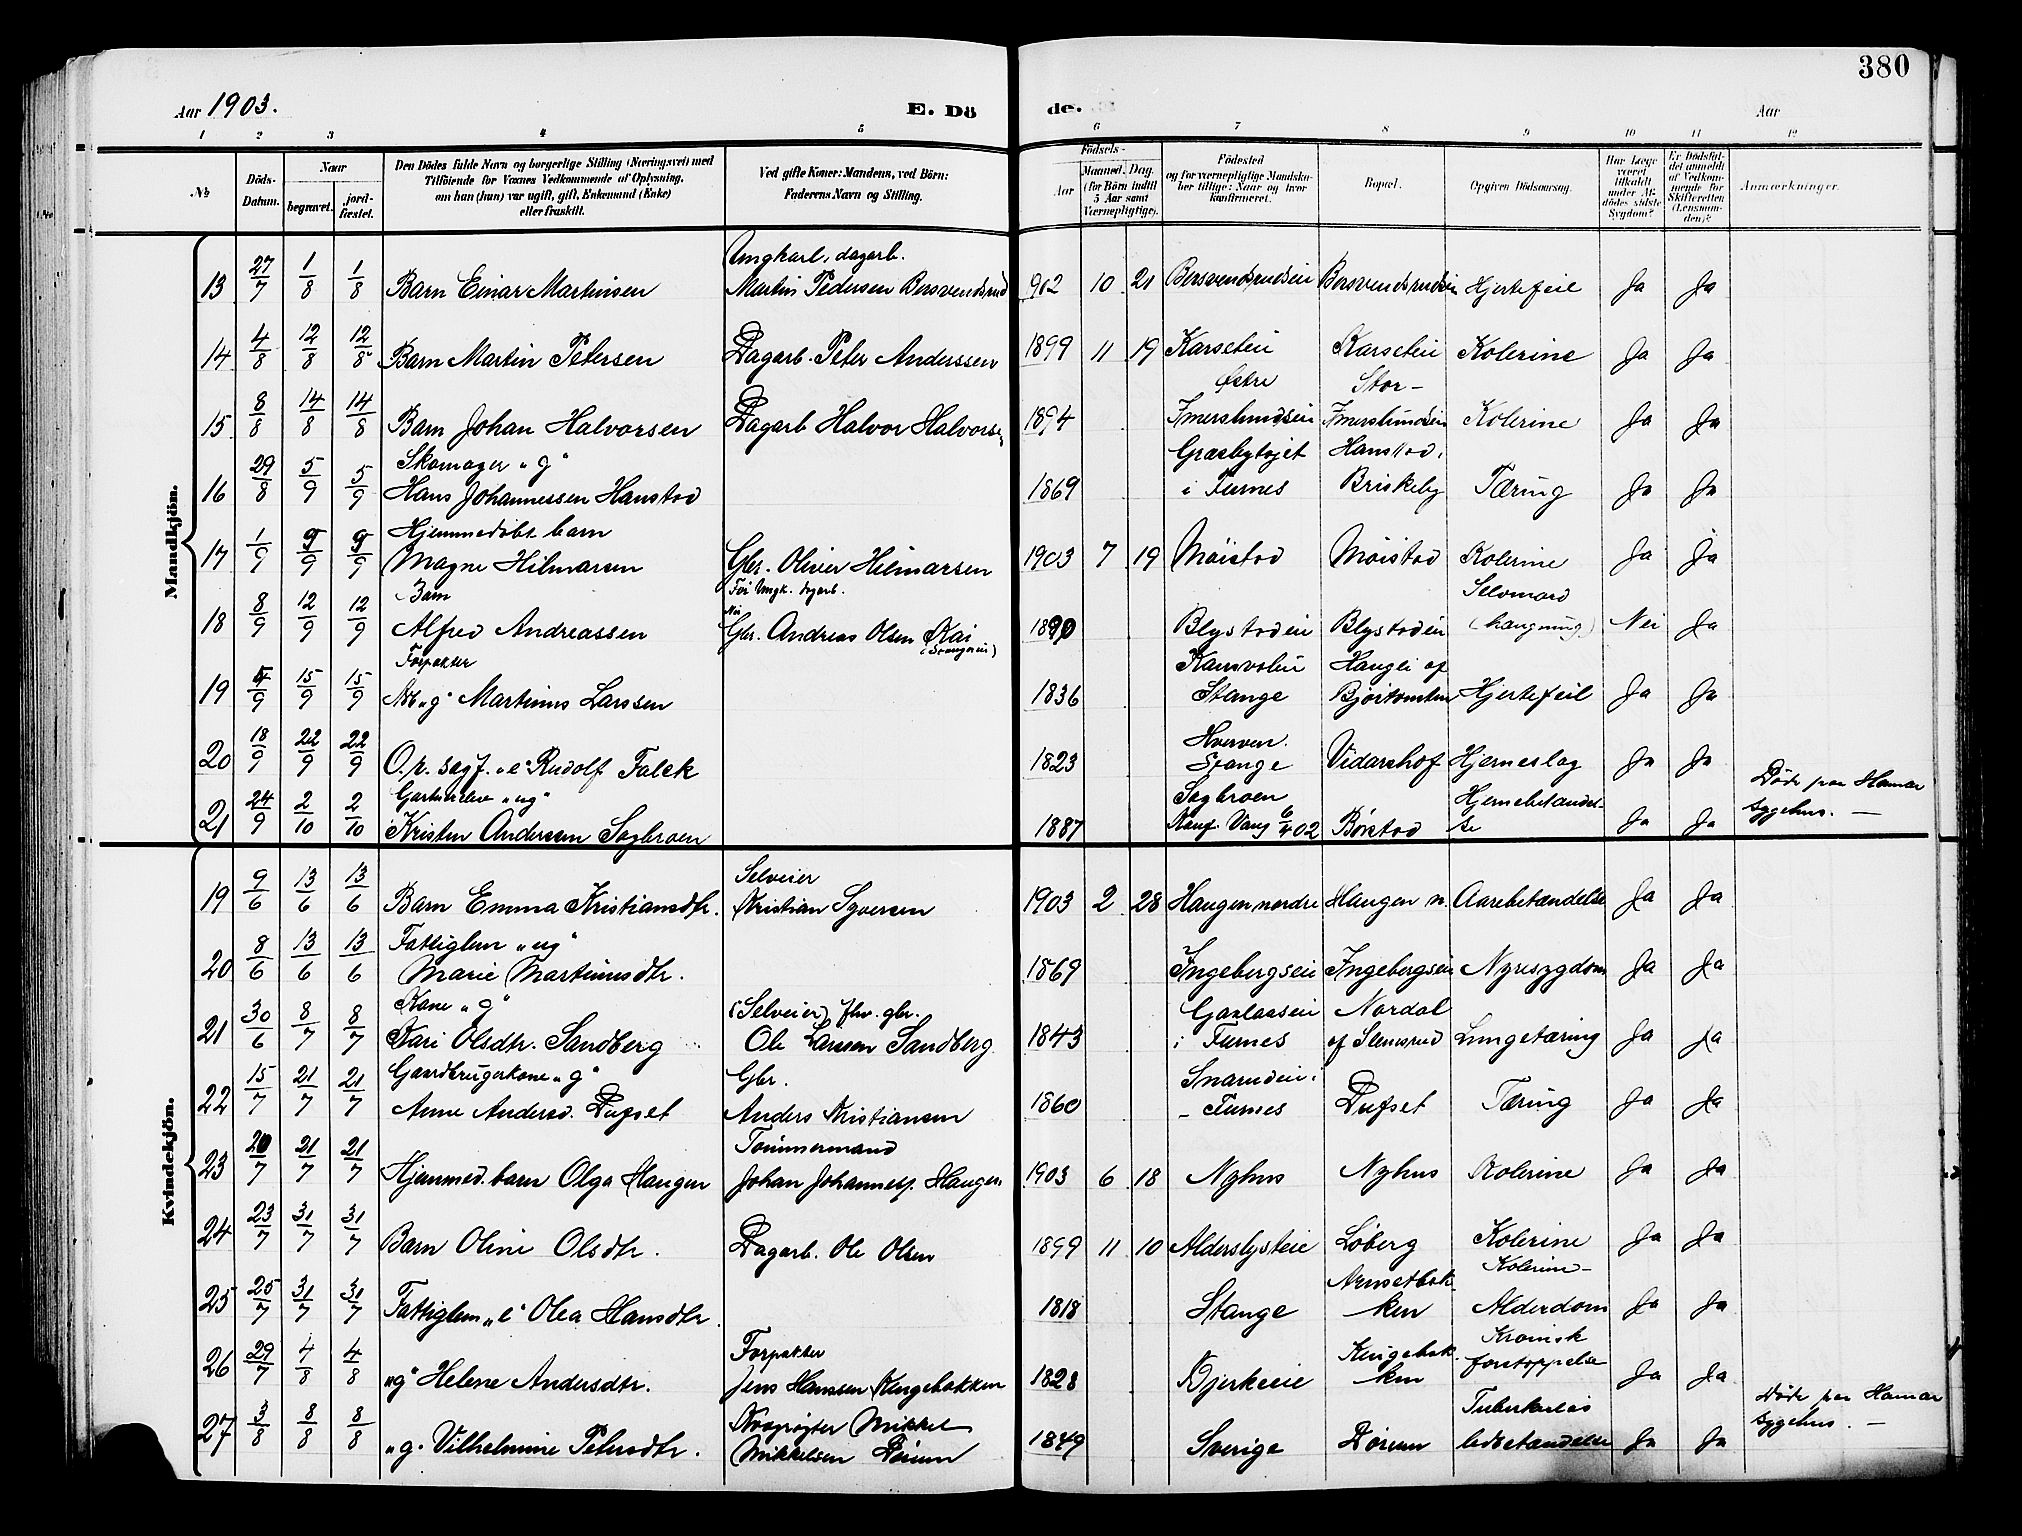 380
Aar 1903.
E. Dö de.
Aar
1 2 3 4 5 6 7 8 9 10 11 12
No
Döds-Datum.
Naar
begravet.
jordfæstet.
Den Dödes fulde Navn og borgerlige Stilling (Næringsvei) med
Tilföiende for Voxnes Vedkommende af Oplysning,
om han (hun) var ugift, gift, Enkemand (Enke)
eller fraskilt.
Ved gifte Koner: Mandens, ved Börn:
Faderens Navn og Stilling.
Födsels-
Aar
Maaned. Dag.
(for Börn indtil
5 Aar samt
Værnepligtige).
Födested
og for værnepligtige Mandskaber tillige: Naar og hvor
konfirmeret.
Bopæl.
Opgiven Dödsaarsag.
Har Læge
været
tilkaldt
under Afdödes sidste
Sygdom?
Er Dödsfaldet anmeldt
af Vedkommende for
Skifteretten
(Lensmanden)?
Anmærkninger.
Mandkjön.
13 27/7 1/8 1/8 Barn Einar Martinsen Ungkarl, dagarb. Martin Pedersen Bersvendsrud 902 10 21 Bersvendsrudeie Bersvendsrudeie Hjertefeil Ja Ja
14 4/8 12/8 12/8 Barn Martin Petersen Dagarb. Peter Anderssen 1899 11 19 Karseteie Karseteie Kolerine Ja Ja
15 8/8 14/8 14/8 Barn Johan Halvorsen Dagarb Halvor Halvorsen 1894 Østre Imerslundseie Stor-Imerslundseie Kolerine Ja Ja
16 29/8 5/9 5/9 Skomager "g" Hans Johannessen Hanstad 1869 i Furnes Hanstad, Briskeby Tæring Ja Ja
17 1/9 9/9 9/9 Hjemmedøbt barn Magne Hilmarsen Gbr. Oliver Hilmarsen 1903 7 19 Møistad Møistad Kolerine Ja Ja
18 8/9 12/9 12/9 Barn Alfred Andreassen Før Ungk. dagarb. Nu Gbr. Andreas Olsen 1890 Blystadeie Blystadeie Selvmord (hængning) Nei Ja
19 9/9 15/9 15/9 Forpakter "g" Martinus Larssen 1836 Stange Haugei af Hjertefeil Ja Ja
20 18/9 22/9 22/9 O.r. sagf. "e" Rudolf Falck 1823 Hverven. Stange Vidarshof Hjerneslag Ja Ja
21 24/9 2/10 2/10 Gartnerelev "ug" Kristen Andersen Sagbroen 1887 Sagbroen Konf. Vang 6/4 02 Børstad Hjernebetændelse Ja Ja Døde paa Hamar sygehus. —
Kvindekjön.
19 9/6 13/6 13/6 Barn Emma Kristiansdtr. Selveier Kristian Syversen 1903 2 28 Haugen nordre Haugen n. Aarebetændelse Ja Ja
20 8/6 13/6 13/6 Fattiglem "ug" Marie Martinusdtr. 1869 Ingebergseie Ingebergseie Nyresygdom Ja Ja
21 30/6 8/7 8/7 Kone "g" Kari Olsdtr. Sandberg (Selveier) fhv. gbr. Ole Larssen Sandberg 1843 Gaalaaseie i Furnes Nordal af Slemsrud Lungetæring Ja Ja
22 15/7 21/7 21/7 Gaardbrugerkone "g" Anne Andersd. Dufset Gbr. Anders Kristiansen 1860 Snarudeie i Furnes Dufset Tæring Ja Ja
23 20/7 21/7 21/7 Hjemmed. barn Olga Haugen Tømmermand Johan Johanness. Haugen 1903 6 18 Nyhus Nyhus Kolerine Ja Ja
24 23/7 31/7 31/7 Barn Oline Olsdtr. Dagarb. Ole Olsen 1899 11 10 Alderslysteie Løberg Kolerine Ja Ja
25 25/7 31/7 31/7 Fattiglem "e" Olea Hansdtr. 1818 Stange Arnsetbakken Kolerine-Alderdom Ja Ja
26 29/7 4/8 4/8 "g" Helene Andersdtr. Forpakter Jens Hanssen Kingebakken 1828 Bjerkeeie Kingebakken Kronisk forstoppelse Ja Ja
27 3/8 8/8 8/8 "g" Vilhelmine Petersdtr. Mikkel Mikkelsen Dørum 1849 Sverige Dørum Tuberkuløs ledbetændelse Ja Ja Døde paa Hamar sygehus. —